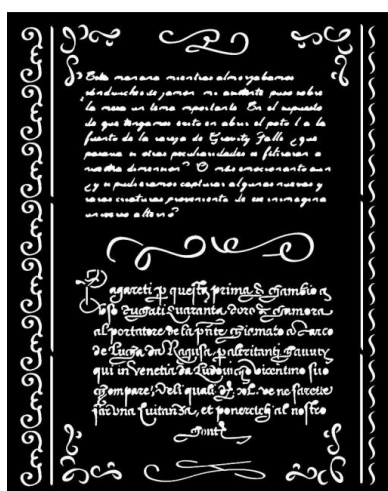 Esta manana mientras almorzabamos
sandwiches de jamon mi asistente puso sobre
la mesa un tema importante En el supuesto
de que tengamos exito en abrir el porta l a la
fuente de la rareza de Gravity Falls ¿que
pasaria si otras peculiaridades se filtraran a
nuestra dimension? O mas emocionante aun
¿y si pudieramos capturar algunas nuevas y
raras criaturas proveniente de ese inimagina
universo alterno?
Pagareti p questa prima di Cambio a
uso ducati quaranta doro di Camera
al portatore de la pnte Cio
de Luca da Ragusa p altritanti
qui in Venetia da Ludovico vicentino suo
Compare, Deli quali
far una Cuitanza, et ponercteli al nostro
Conto